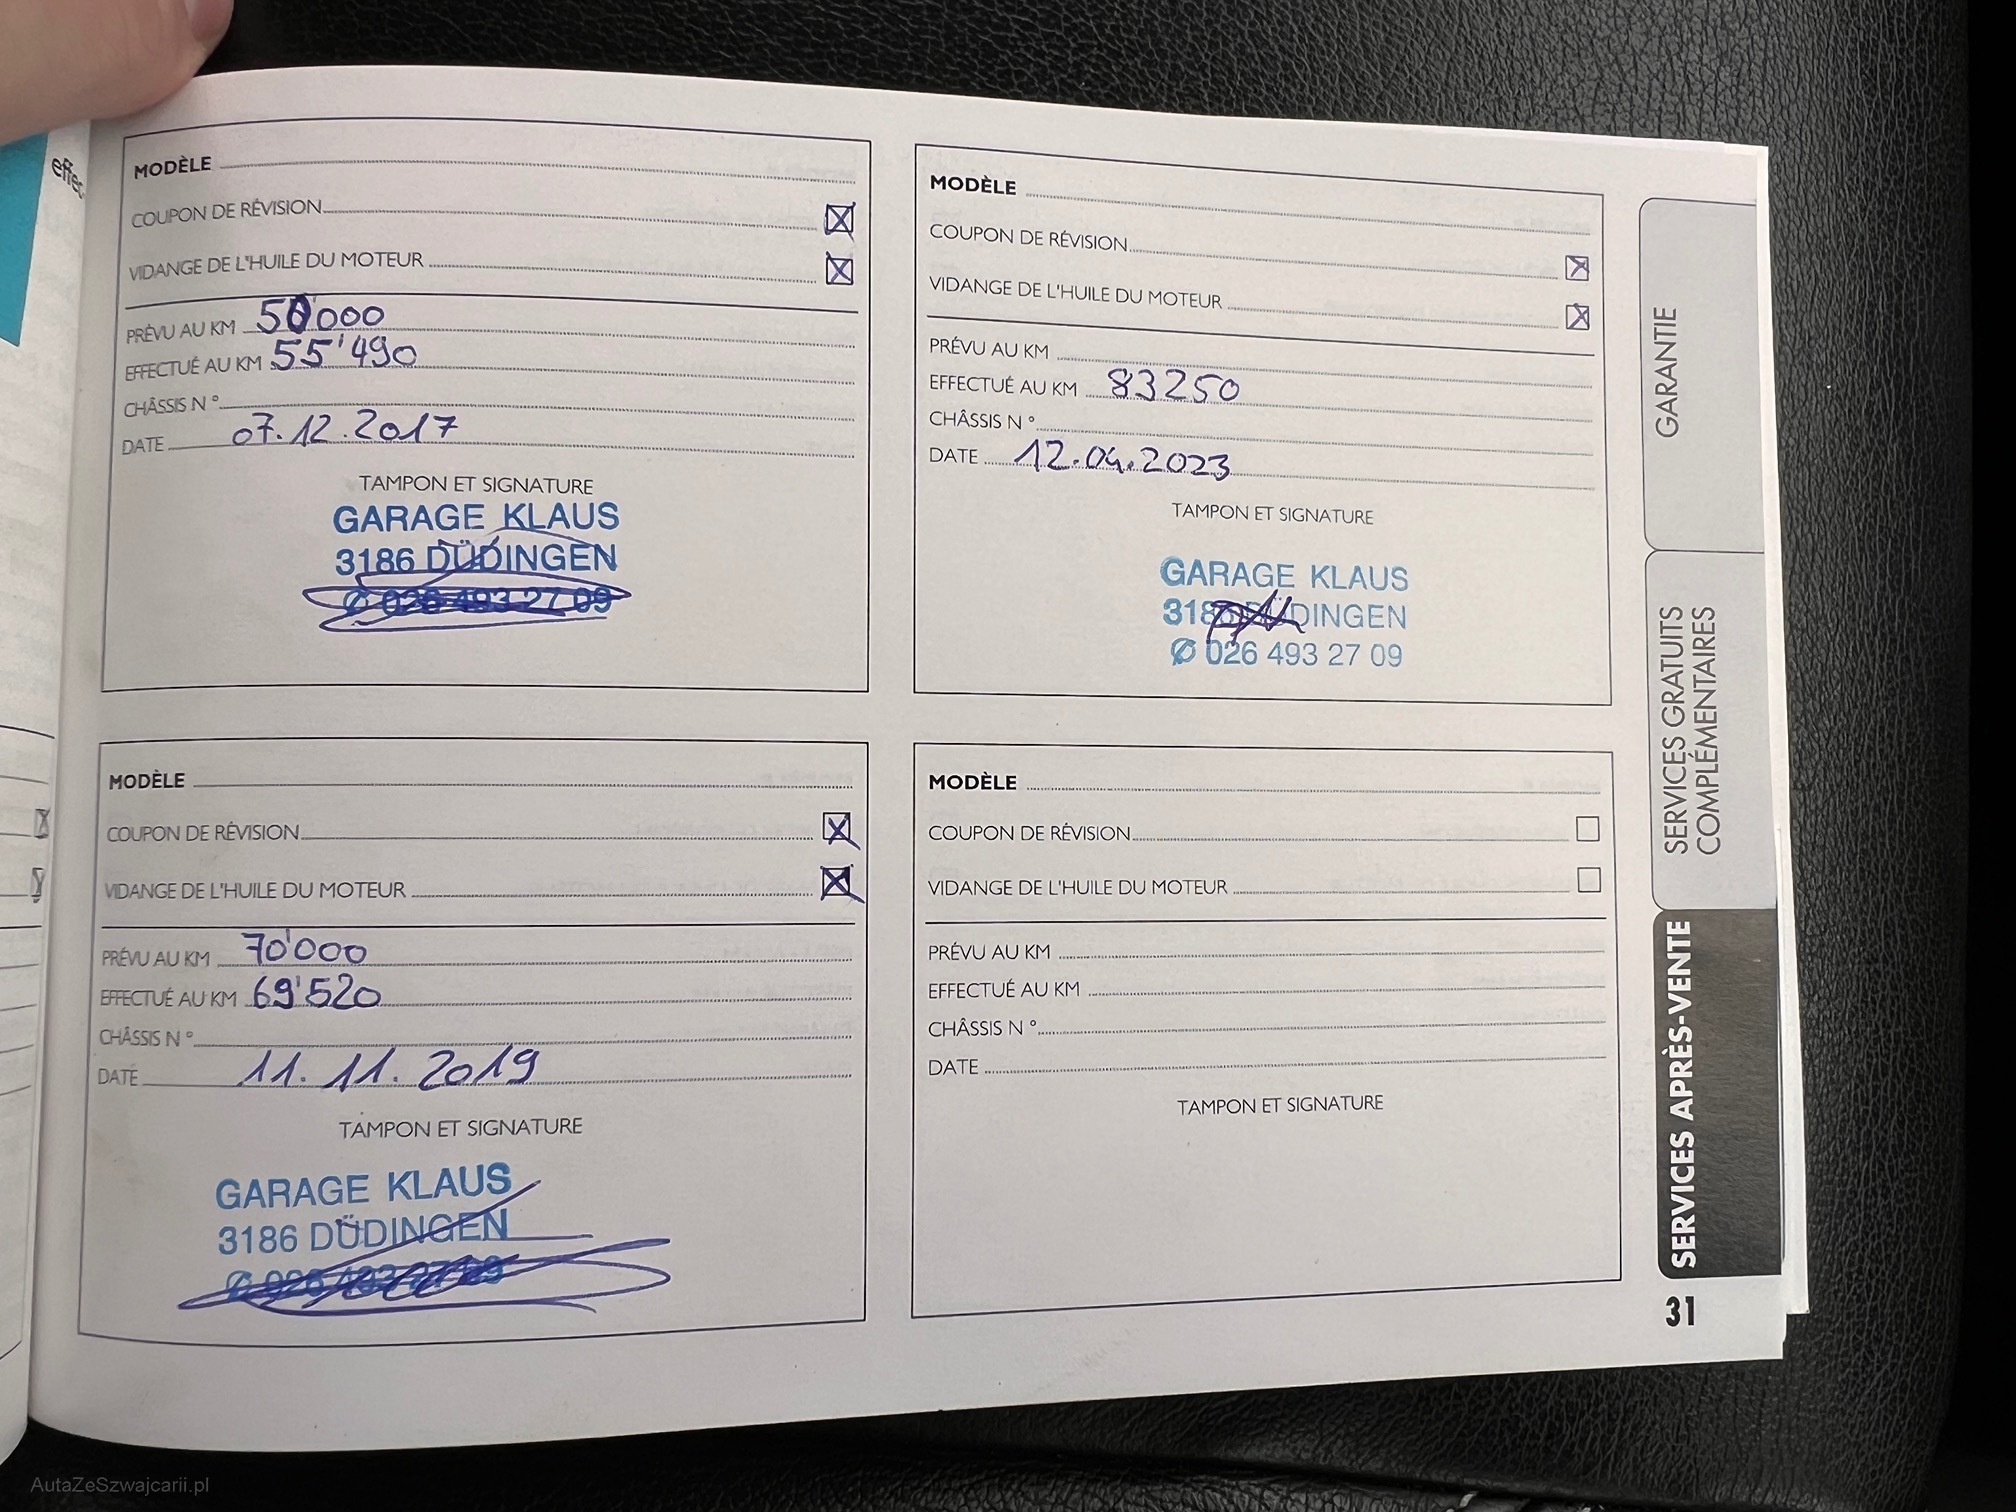 effec
MODÈLE
COUPON DE RÉVISION
VIDANGE DE L'HUILE DU MOTEUR
PRÉVU AU KM 50'000
EFFECTUÉ AU KM 55'490
CHÂSSIS N°
DATE 07.12.2017
TAMPON ET SIGNATURE
GARAGE KLAUS
3186 DÜDINGEN
026 493 27 09
MODÈLE
COUPON DE RÉVISION
VIDANGE DE L'HUILE DU MOTEUR
PRÉVU AU KM
EFFECTUÉ AU KM 83250
CHÂSSIS N°
DATE 12.04.2023
TAMPON ET SIGNATURE
GARAGE KLAUS
3186 DÜDINGEN
026 493 27 09
MODÈLE
COUPON DE RÉVISION
VIDANGE DE L'HUILE DU MOTEUR
PRÉVU AU KM 70'000
EFFECTUÉ AU KM 69'520
CHÂSSIS N°
DATE 11.11.2019
TAMPON ET SIGNATURE
GARAGE KLAUS
3186 DÜDINGEN
026 493 27 09
MODÈLE
COUPON DE RÉVISION
VIDANGE DE L'HUILE DU MOTEUR
PRÉVU AU KM
EFFECTUÉ AU KM
CHÂSSIS N°
DATE
TAMPON ET SIGNATURE
GARANTIE
SERVICES GRATUITS
COMPLÉMENTAIRES
SERVICES APRÈS-VENTE
31
AutaZeSzwajcarii.pl